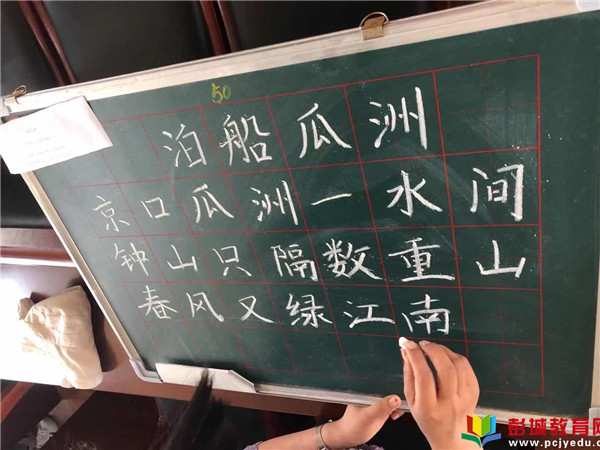 50
泊船瓜洲
京口瓜洲一水间
钟山只隔数重山
春风又绿江南
彭城教育网
www.pcjyedu.com